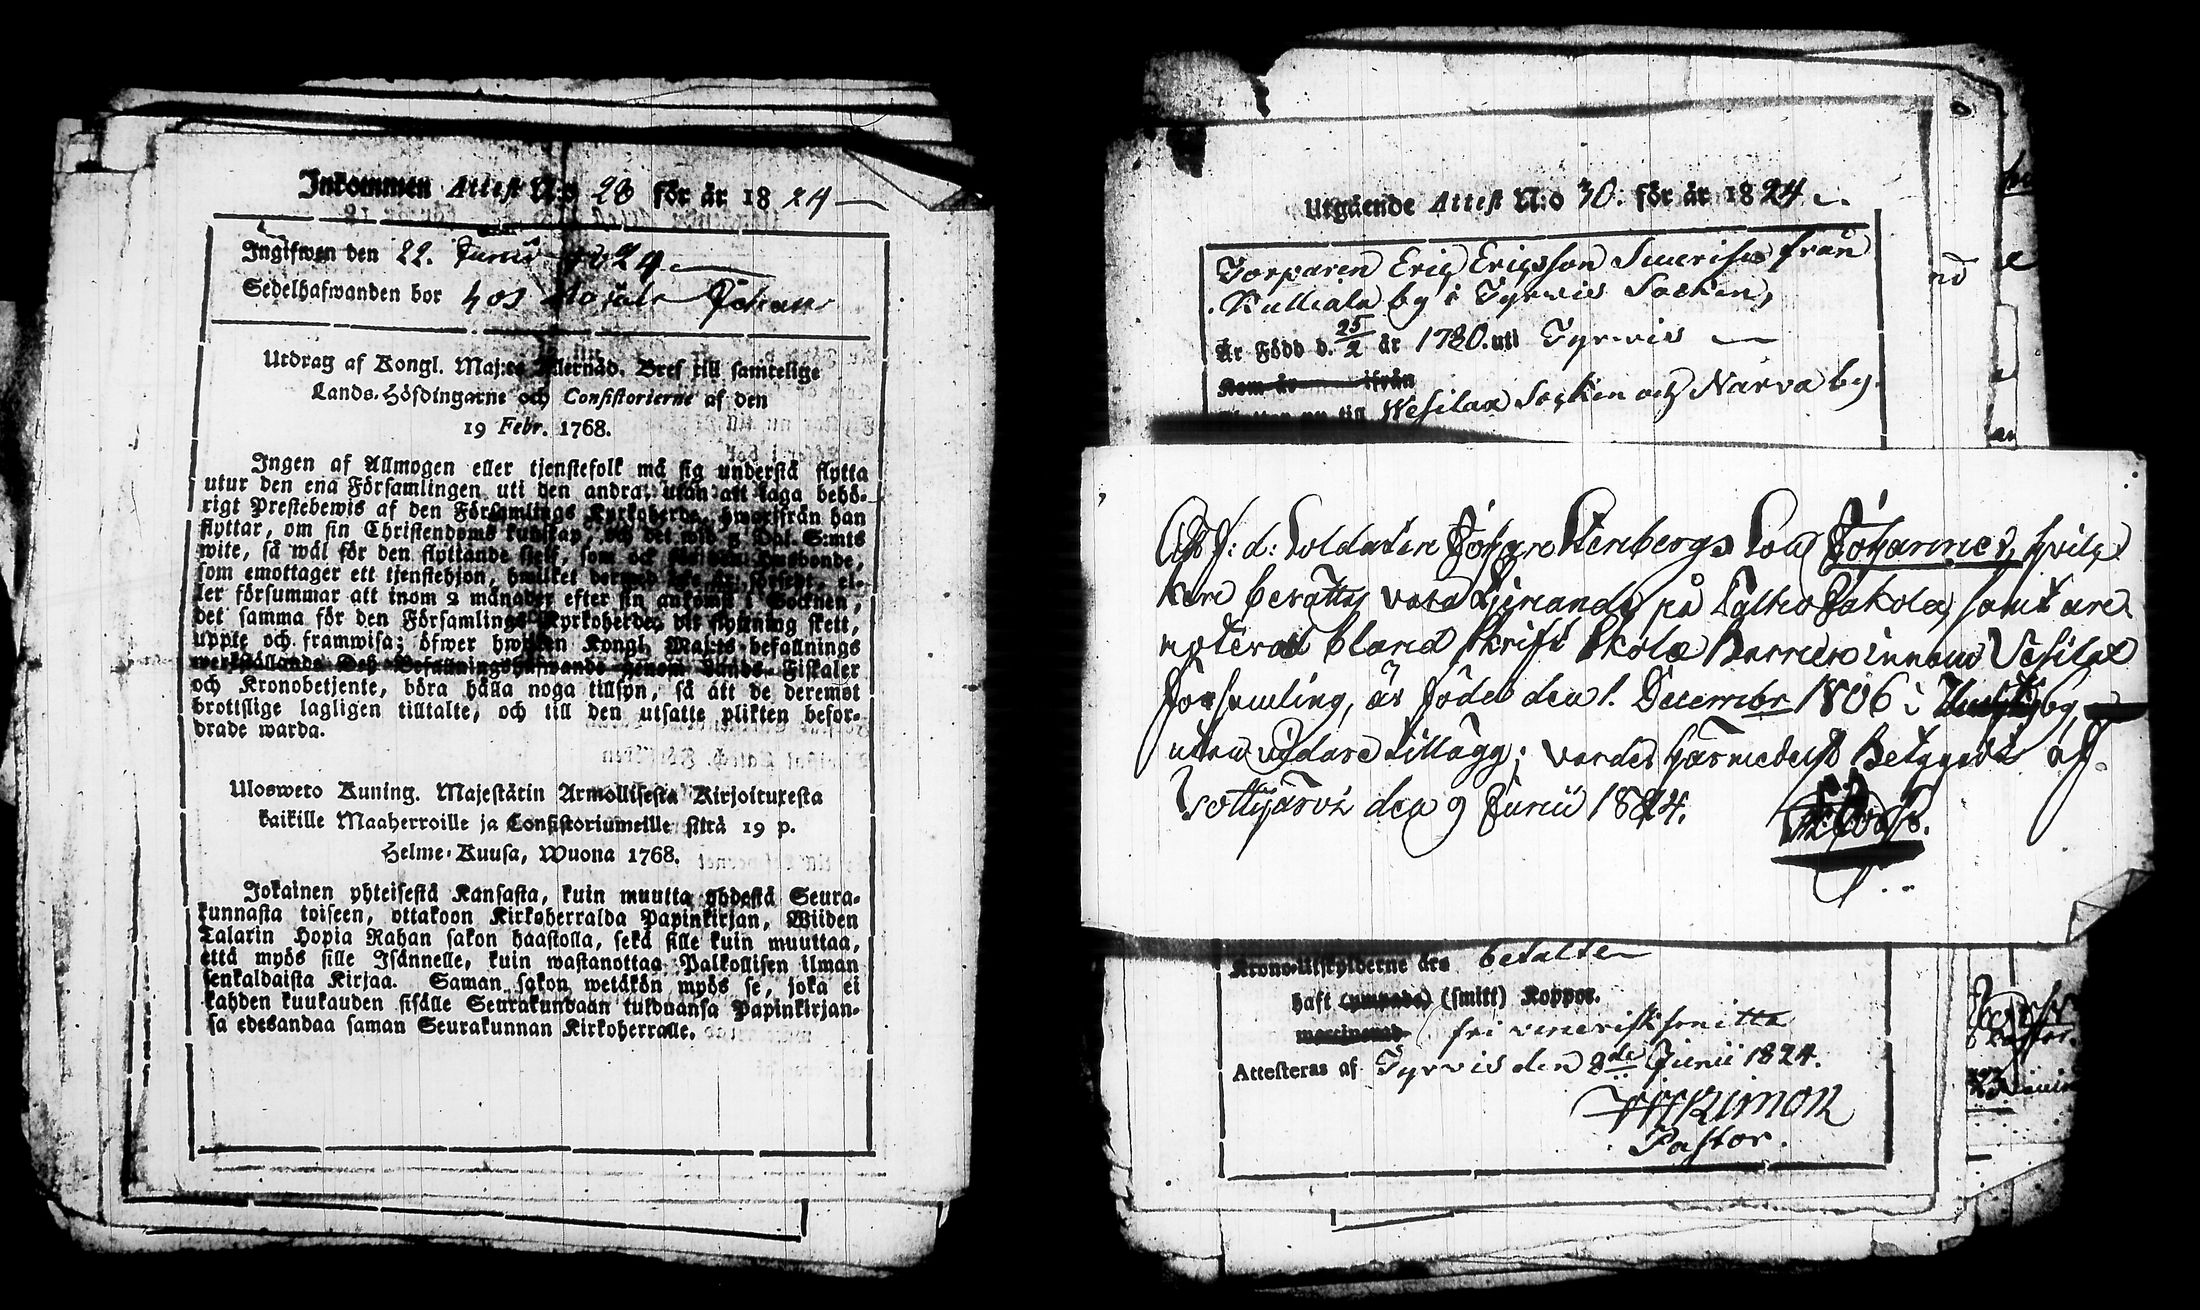 Inkommen Attest N:o 28 för år 1824
Ingifwen den 22. Junii 1824
Sedelhafwanden bor hos Johan
Utdrag af Kongl. Maj:ts Allernåd. Bref till samtelige
Lands-Höfdingarne och Consistorierne af den
19 Febr. 1768.
Ingen af Allmogen eller tjenstefolk må sig understå flytta
utur den ena Församlingen uti den andra, utan att taga behö-
rigt Prestebewis af den Församlings Kyrkoherde, hwarifrån han
flyttar, om sin Christendoms kunskap, och det wid 5 Dal. S:mts
wite, så wäl för den flyttande sjelf, som ock husbonde,
som emottager ett tjenstehjon, hwilket dermed icke är försedt, el-
ler försummar att inom 2 månader efter sin ankomst i Socknen,
det samma för den Församlings Kyrkoherde, dit flyttning skett,
uppte och framwisa; öfwer hwilken Kongl. Maj:ts befallnings
werkställande Deß Befallningshafwande genom Lands-Fiskaler
och Kronobetjente, böra hålla noga tillsyn, så att de deremot
brottslige lagligen tilltalte, och till den utsatte plikten befor-
drade warda.
Ulosweto Kuning. Majestätin Armollisesta Kirjoituxesta
kaikille Maaherroille ja Consistoriumeille siitä 19 p.
Helme-Kuusa, Wuona 1768.
Jokainen yhteisestä Kansasta, kuin muutta yhdestä Seura-
kunnasta toiseen, ottakoon Kirkoherralda Papinkirjan, Wiiden
Talarin Hopia Rahan sakon haastolla, sekä sille kuin muuttaa,
että myös sille Isännelle, kuin wastanottaa Palkollisen ilman
senkaldaista Kirjaa. Saman sakon wetäkön myös se, joka ei
kahden kuukauden sisälle Seurakundaan tulduansa Papinkirjan-
sa edesandaa saman Seurakunnan Kirkoherralle.
Utgående Attest N:o 30. för år 1824
Torparen Eric Ericsson från
Kulliala by i Tyrwis Socken,
Är Född d. 25/2 år 1780. uti Tyrwis
Kom år ifrån
Wesilax Socken och Narva by.
At f: d: Soldaten Johan Stenbergs Son Johannes, hvilc
kere berättas vara tjenande på Jakola, samt are
noterad bland Skrift Skole Barnen innom Vesilax
församling, är född den 1. Decembr 1806 i by,
utan vidare tillägg; varder härmedelst betygadt af
Sottijärvi den 9 Junii 1824.
Krono-Utskylderne äro betalte
haft (smitt) Koppor.
fri venerisk smitta
Attesteras af Tyrvis den 8de Junii 1824.
Pastor.